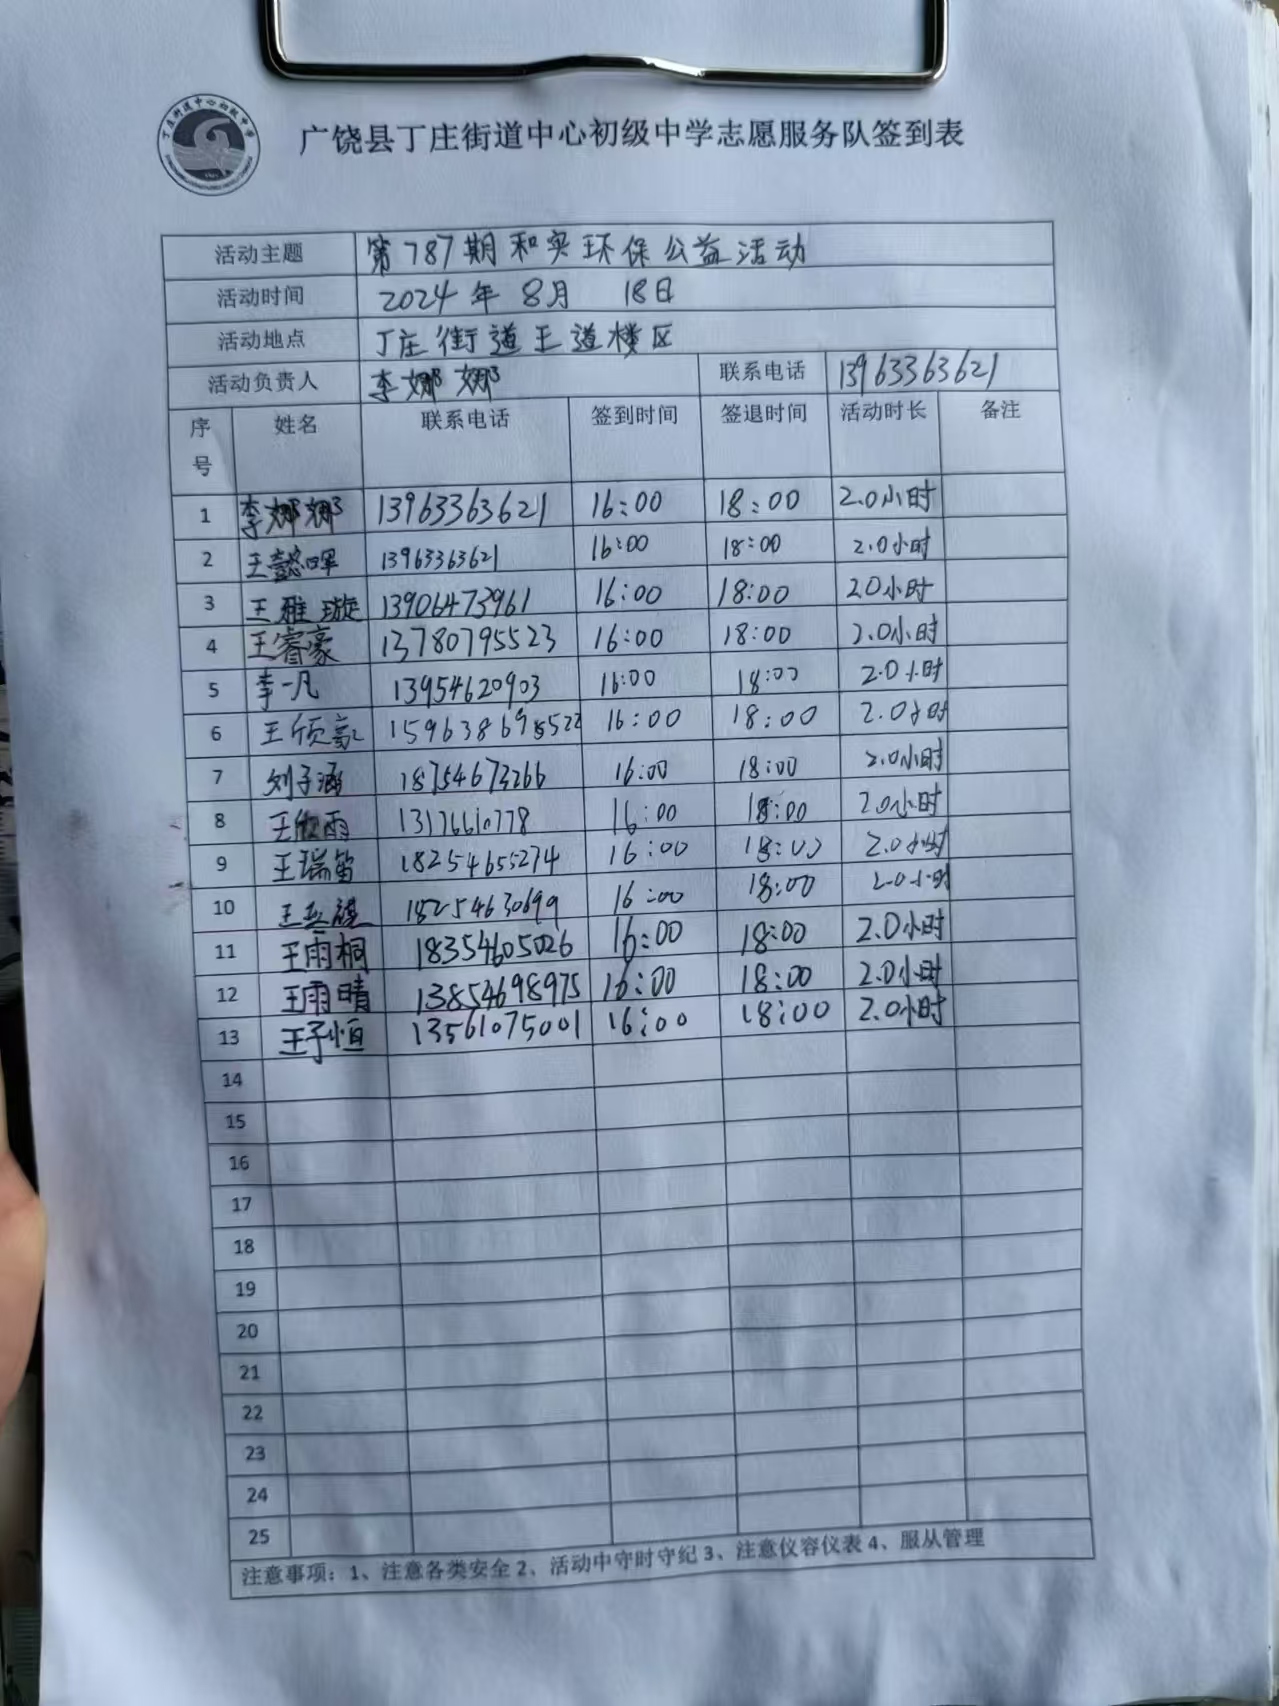 丁庄街道中心初级中学
广饶县丁庄街道中心初级中学志愿服务队签到表
活动主题 第787期和实环保公益活动
活动时间 2024年8月 18日
活动地点 丁庄街道王道楼区
活动负责人 李娜娜 联系电话 13963363621
序号 姓名 联系电话 签到时间 签退时间 活动时长 备注
1 李娜娜 13963363621 16:00 18:00 2.0小时
2 王懿晖 13963363621 16:00 18:00 2.0小时
3 王雅璇 13906473961 16:00 18:00 2.0小时
4 王睿豪 13780795523 16:00 18:00 2.0小时
5 李一凡 13954620903 16:00 18:00 2.0小时
6 16:00 18:00 2.0小时
7 刘子涵 18754673266 16:00 18:00 2.0小时
8 王欣雨 13176610778 16:00 18:00 2.0小时
9 王瑞笛 18254655274 16:00 18:00 2.0小时
10 18254630699 16:00 18:00 2.0小时
11 王雨桐 18354605026 16:00 18:00 2.0小时
12 王雨晴 13854698975 16:00 18:00 2.0小时
13 王子恒 13561075001 16:00 18:00 2.0小时
14
15
16
17
18
19
20
21
22
23
24
25
注意事项：1、注意各类安全 2、活动中守时守纪 3、注意仪容仪表 4、服从管理